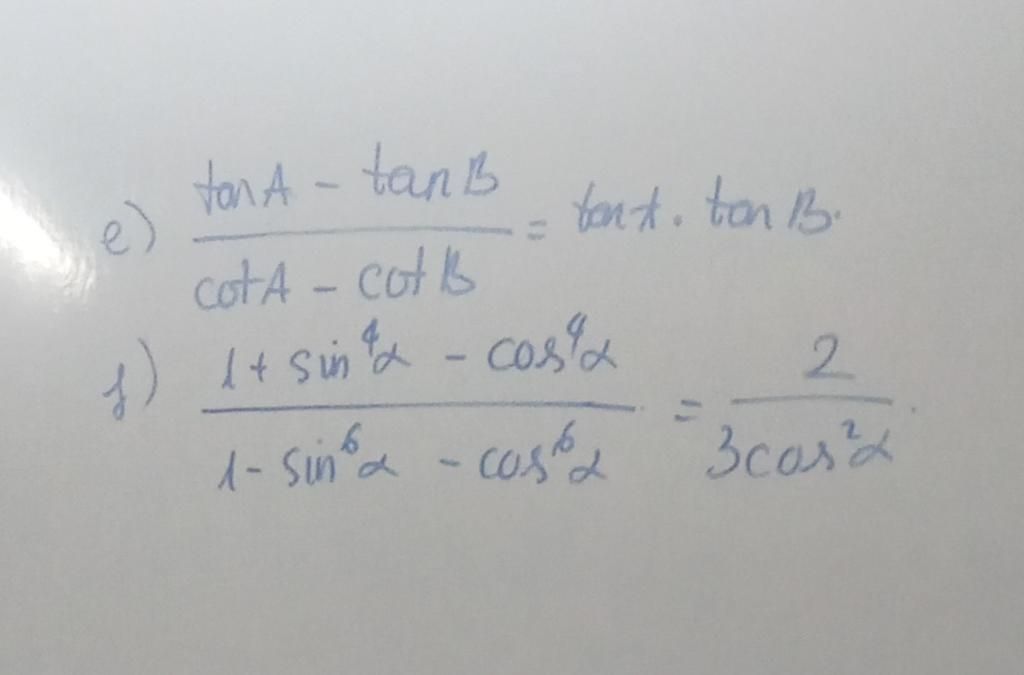 e) (tanA - tanB)/(cotA - cotB) = tanA . tan B.
f) (1 + sin⁴α - cos⁴α)/(1 - sin⁶α - cos⁶α) = 2/(3cos²α).